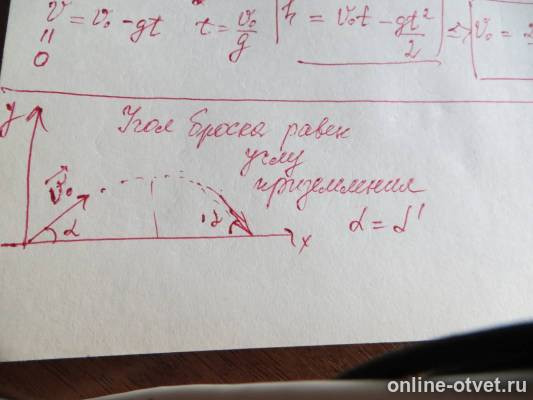 v = v₀ - gt
t = v₀/g
h = v₀t - gt²/2 => v₀ =
"
0
y
Угол броска равен
углу
приземления
v⃗₀
α
α
x
α = α'
online-otvet.ru